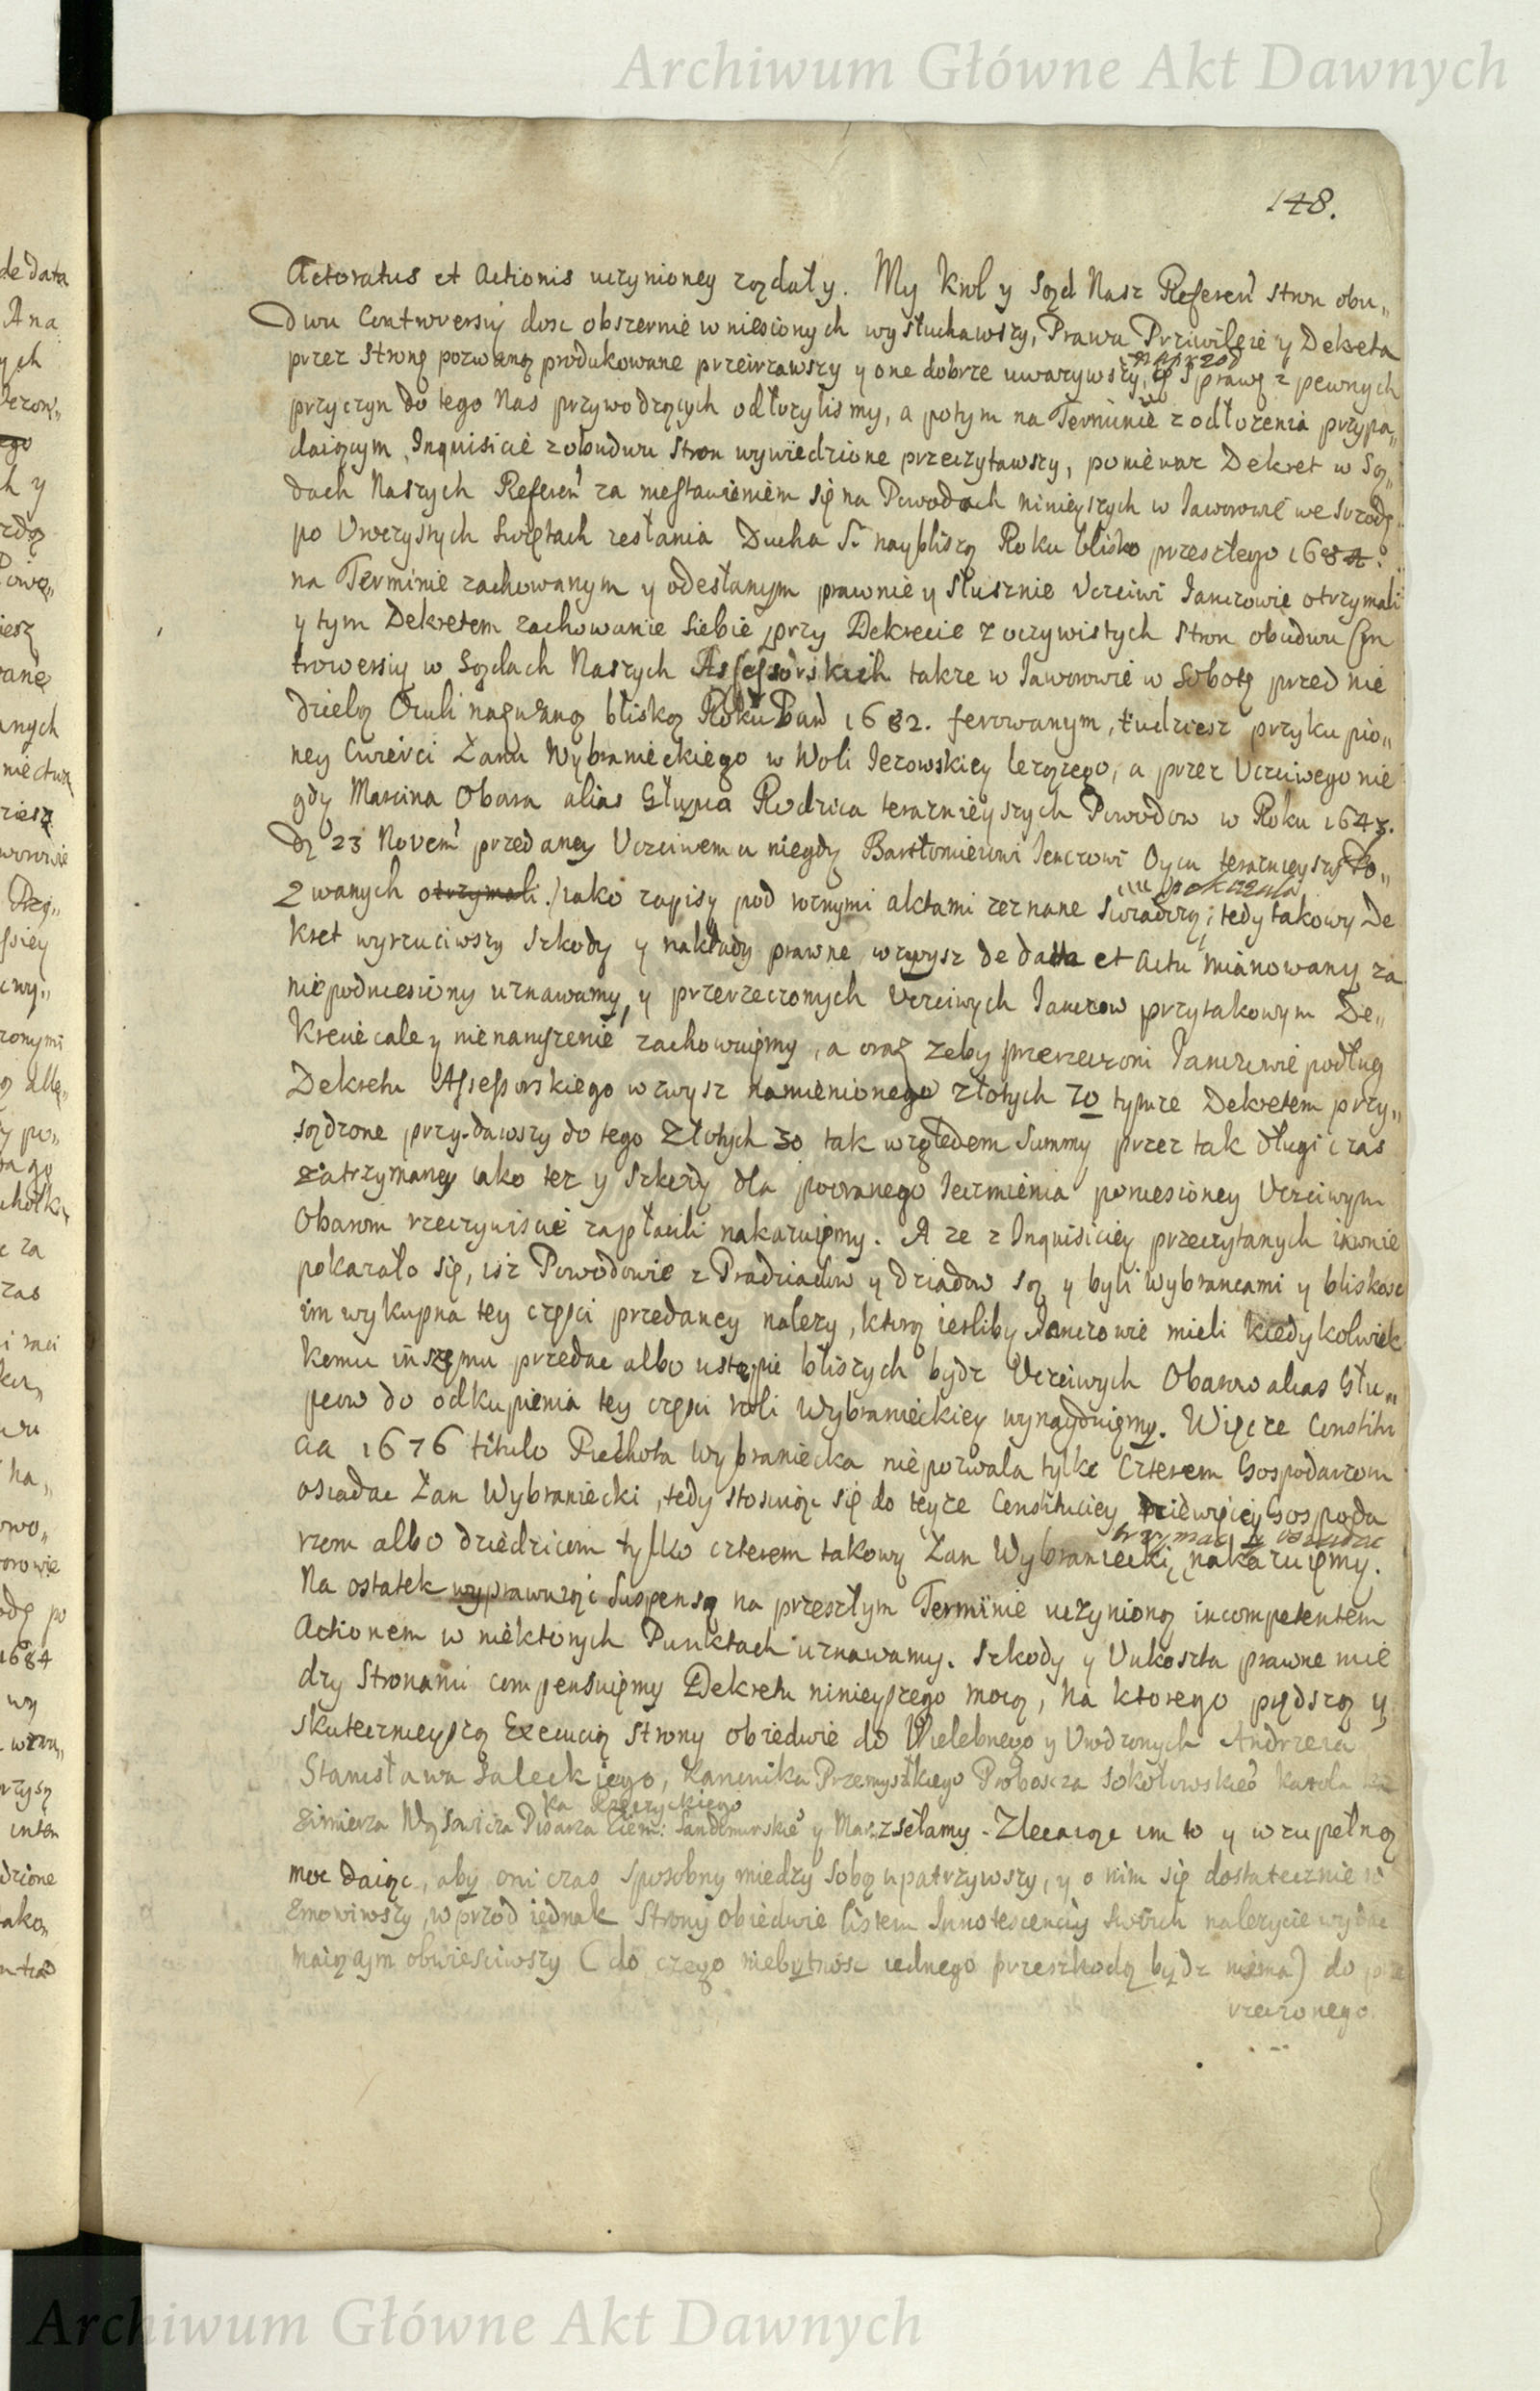 Archiwum Główne Akt Dawnych
148.
Actoratus et Actionis uczynioney ządały. My Krol y Sąd Nasz Referen̄ stron obu„
dwu Controversiy dosc obszernie wniesionych wysłuchawszy, Prawa Przwileie y Dekreta
przez Stronę pozwaną produkowane przeirzawszy y one dobrze uwazywszy, naprzod Sprawę z pewnych
przyczyn do tego Nas przywodzących odłozylismy, a potym na Terminie z odłozenia przypa„
daiącym, Inquisicie z obudwu stron wywiedzione przeczytawszy, poniewaz Dekret w Są„
dach Naszych Referen̄ za niestawieniem się na Powodach ninieyszych w Iaworowie we Srzodę
po Uroczystych Swiętach zesłania Ducha S. naybliszą Roku blisko przeszłego 1684.
na Terminie zachowanym y odesłanym prawnie y słusznie Uczciwi Ianczowie otrzymali
y tym Dekretem zachowanie siebie przy Dekrecie z oczywistych stron obudwu Con
troversiy w Sądach Naszych Assessorskich takze w Iaworowie w Sobotę przed nie
dzielą Oculi nazwaną bliską Roku Pań 1682. ferowanym, tudziesz przykupio„
ney Cwierci Łanu Wybranieckiego w Woli Iezowskiey lezącego, a przez Uczciwego nie
gdy Marcina Obara alias Głupca Rodzica terazniéyszych Powodow w Roku 1643.
Dą 23 Novem̄ przedaney Uczciwemu niegdy Bartłomieiowi Ienczowi Oycu teraznieyszych Po„
zwanych otrzymali. iako zapisy pod roznymi aktami zeznane swiadczą; tedy takowy De
kret wyrzuciwszy szkody y nakłady prawne wzwysz de data et actu mianowany za
niepodniesiony uznawamy, y przerzeczonych Uczciwych Ianczow przy takowym De„
krecie cale y nienaruszenie zachowuięmy, a oraz zeby przerzeczoni Ianczowie podług
Dekretu Assessorskiego wzwysz namienionego złotych 70 tymze Dekretem przy„
sądzone przydawszy do tego Złotych 30 tak względem Summy przez tak długi czas
zatrzymaney iako tez y szkody dla pooranego Ieczmienia poniesioney Uczciwym
Obarom rzeczywiscie zapłacili nakazuięmy. A ze z Inquisiciey przeczytanych iawnie
pokazało się, isz Powodowie z Pradziadow y dziadow są y byli Wybrancami y bliskosc
im wykupna tey częsci przedaney nalezy, ktorą iesliby Ianczowie mieli kiedykolwiek
komu inszęmu przedac albo ustąpic bliszych bydz Uczciwych Obarow alias Głu„
pcow do odkupienia tey częsci roli Wybranieckiey wynayduięmy. Więc ze Constitu
cia 1676 titulo Piechota wybraniecka niepozwala tylko Czterem Gospodarzom
osiadac Łan Wybraniecki, tedy stosuiąc się do teyze Constituciey niewięcey Gospoda
rzom albo dziedzicom tylko czterem takowy Łan Wybraniecki trzymac y osiadac nakazuięmy.
Na ostatek wyprawuiąc Suspensę na przeszłym Terminie uczynioną incompetentem
Actionem w niektorych Punktach uznawamy. Szkody y Unkoszta prawne mie
dzy Stronami compensuięmy Dekretu ninieyszego mocą, Na ktorego pędszą y
skutecznieyszą Execucią strony obiedwie do Wielebnego y Urodzonych Andrzeia
Stanisława Saleckiego, Kanonika Przemyslkiego Proboscza Sokołowskie° Karola Ka
zimierza Pisarza Ziem: Sandomirskie° y odsełamy. Zlecaiąc im to y w zupełną
moc daiąc, aby oni czas sposobny miedzy sobą upatrzywszy, y o nim się dostatecznie
zmowiwszy, wprzod iednak Strony obiedwie listem Innotescenciy swoich nalezycie wydac
maiącym obwiesciwszy (do czego niebytnosc iednego przeszkodą bydz niema) do prze
rzeczonego.
Archiwum Główne Akt Dawnych